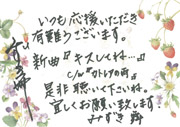 いつも応援いただき
有難うございます。
新曲『キスしてね…』
c/w『カトレアの雨』
是非聴いてくださいね。
宜しくお願い致します。
みずき舞